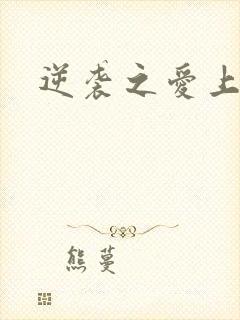 逆袭之爱上
熊蔓